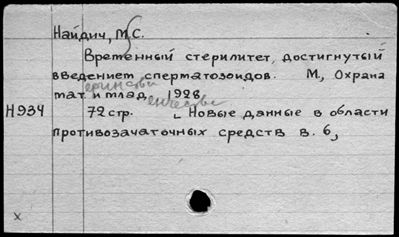 Найдич, М.С.
Временный стерилитет, достигнутый
введением сперматозоидов. М, Охрана
мат и млад, 1928
Н934 72 стр. Новые данные в области
противозачаточных средств в. 6,
х